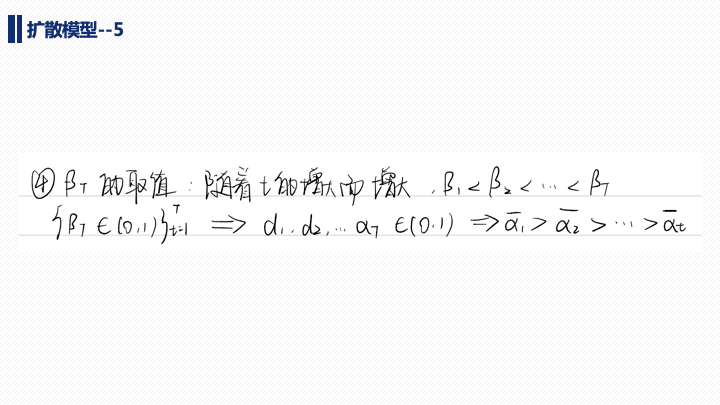 扩散模型--5
④ βT 的取值：随着 t 的增大而增大，β₁ < β₂ < … < βT
{βT ∈ (0,1)}ᵀₜ₌₁ ⇒ α₁, α₂, … αT ∈ (0,1) ⇒ ᾱ₁ > ᾱ₂ > … > ᾱₜ